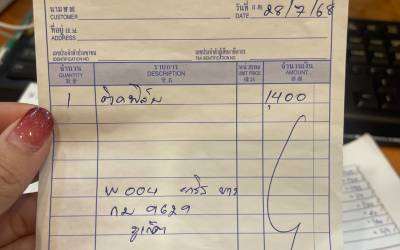 นาม 客戶
CUSTOMER
วันที่ 日期
DATE 28/7/68
ที่อยู่ 住址
ADDRESS
เลขประจำตัวประชาชน
IDENTIFICATION NO.
เลขประจำตัวผู้เสียภาษีอากร
TAX IDENTIFICATION NO.
จำนวน รายการ หน่วยละ จำนวนเงิน
QUANTITY DESCRIPTION UNIT PRICE AMOUNT
1 ติดฟิล์ม 1,400
W 004 ยาริส ขาว
กม 9629
ภูเก็ต